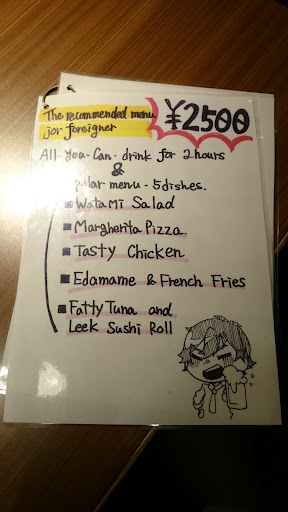 The recommended menu
jor foreigner
¥2500
All-You-Can-drink for 2 hours
&
pular menu - 5 dishes.
■ Watami Salad
■ Margherita Pizza.
■ Tasty Chicken
■ Edamame & French Fries
■ Fatty Tuna and
Leek Sushi Roll